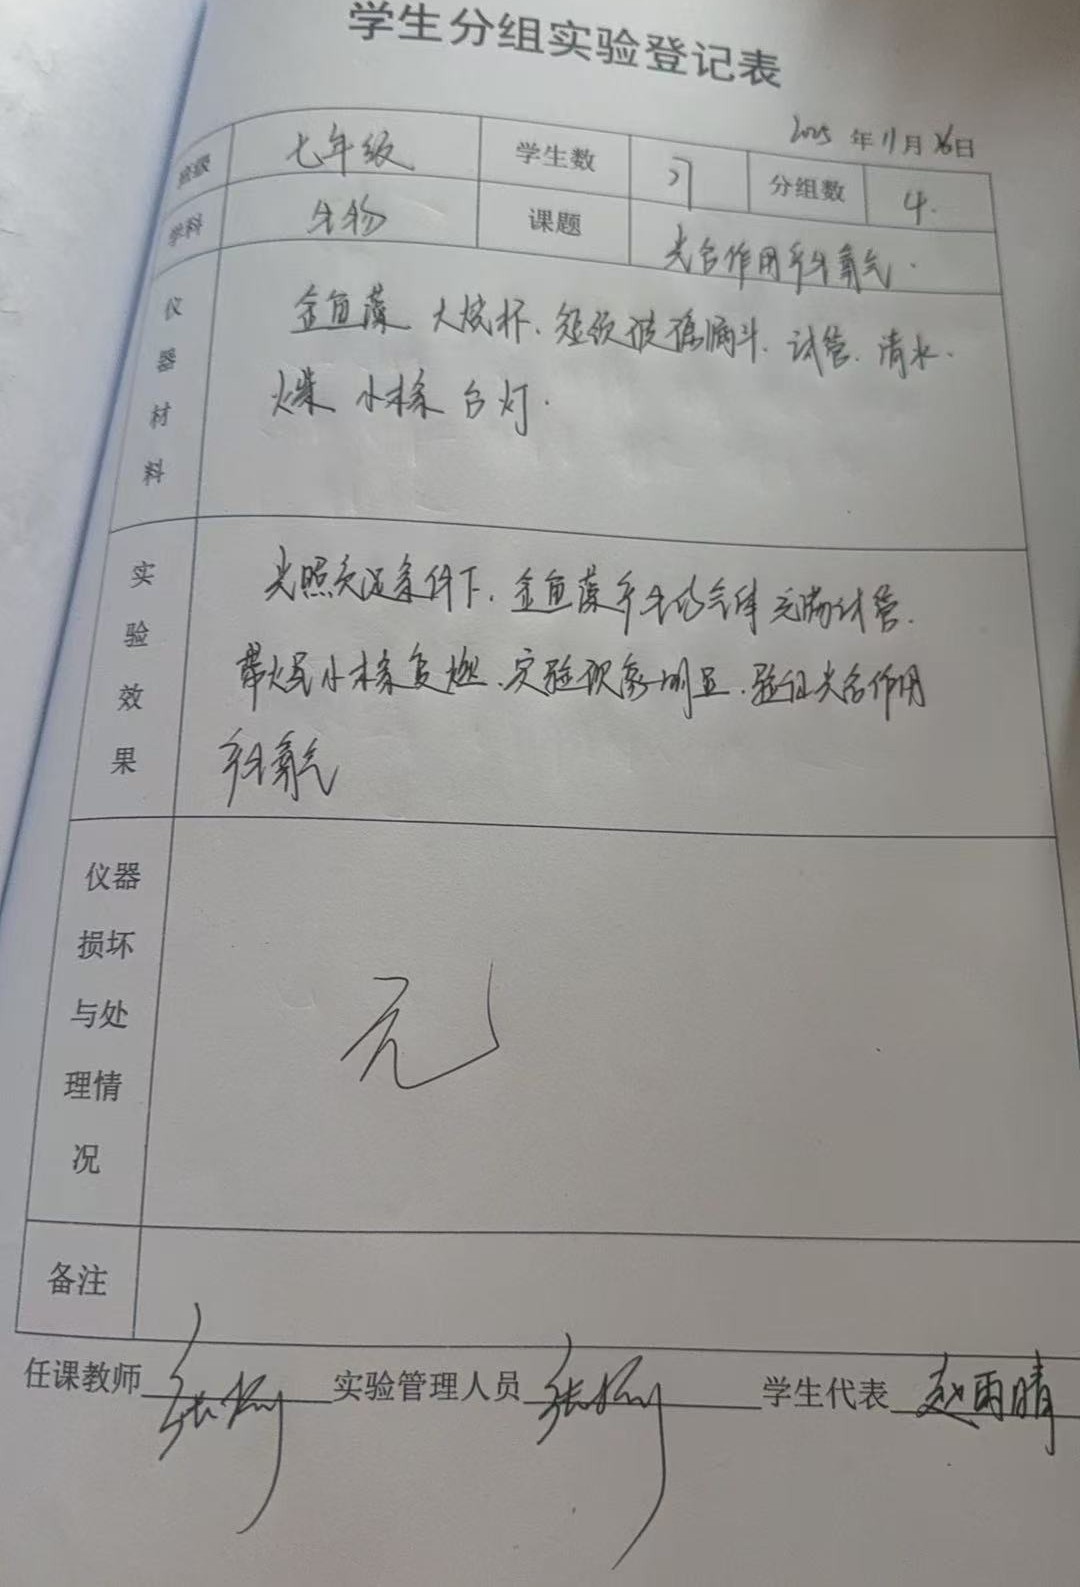 学生分组实验登记表
2025年11月26日
班级 七年级 学生数 分组数 4.
学科 生物 课题 光合作用产生氧气.
仪器材料 金鱼藻 大烧杯、短颈玻璃漏斗、试管、清水、
火柴 小木条 台灯.
实验效果 光照充足条件下,金鱼藻产生的气体充满试管.
带火星小木条复燃、实验现象明显、验证光合作用
产生氧气
仪器损坏与处理情况 无
备注
任课教师 实验管理人员 学生代表 赵雨晴